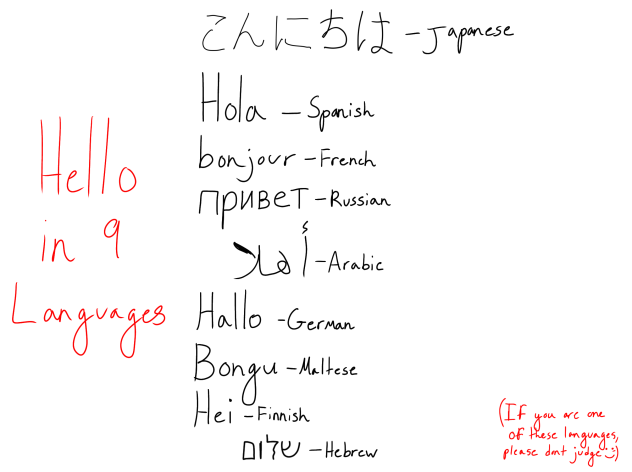 こんにちは - Japanese
Hola - Spanish
bonjour - French
привет - Russian
أهلا - Arabic
Hallo - German
Bongu - Maltese
Hei - Finnish
שלום - Hebrew
Hello
in 9
Languages
(If you are one
of these languages,
please dont judge :))